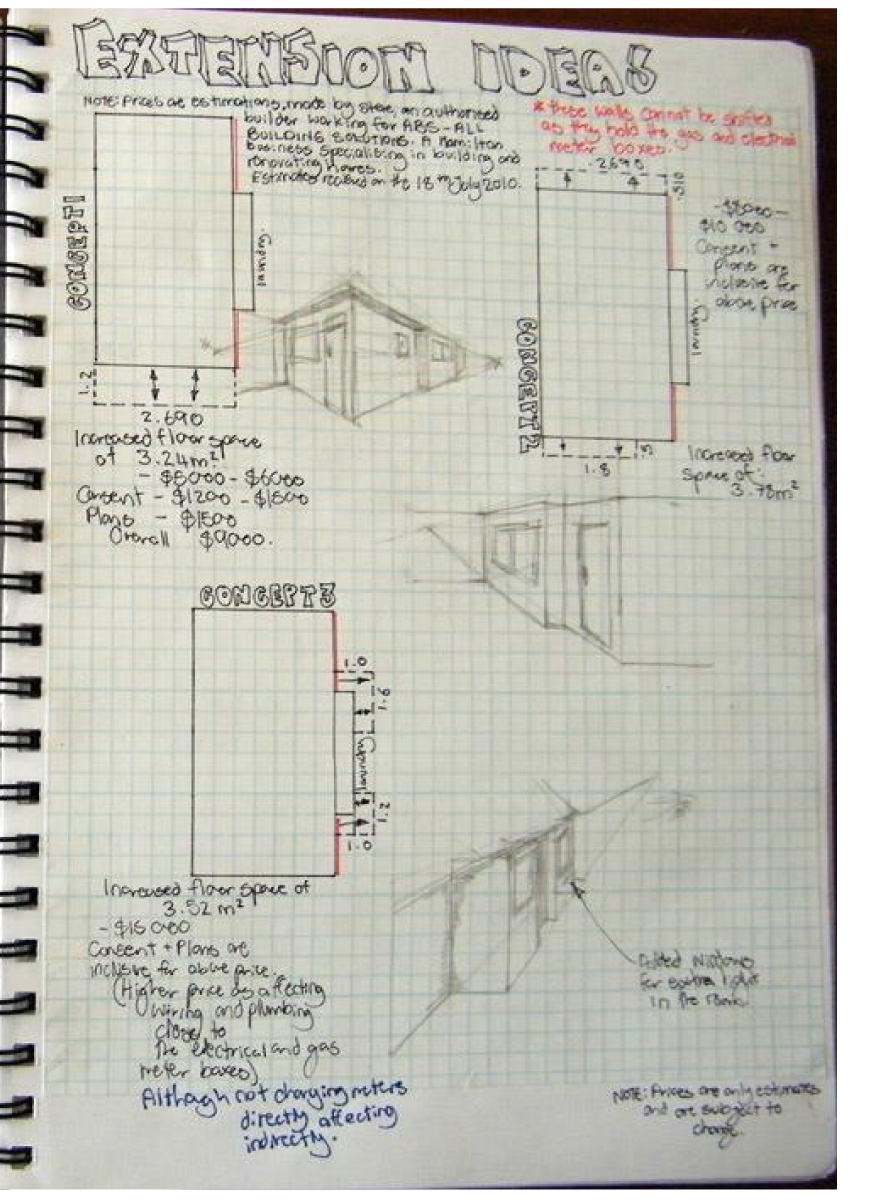 EXTENSION IDEAS
NOTE: Prices are estimations, made by steve, an authorised
builder working for ABS-ALL
BUILDING SOLUTIONS. A Hamilton
business specialising in building and
renovating homes.
Estimates received on the 18th July 2010.
* these walls cannot be shifted
as they hold the gas and electrical
meter boxes.
CONCEPT 1
1.2
2.690
Increased floor space
of 3.24m²
- $5000 - $6000
Consent - $1200 - $1500
Plans - $1500
Overall $9000.
2.690
.510
CONCEPT 2
- $8000 -
$10 000
Consent +
plans are
inclusive for
above price
1.8
.5
Increased floor
space of:
3.78m²
CONCEPT 3
1.0
1.6
1.2
1.0
Increased floor space of
3.52 m²
- $15 000
Consent + Plans are
inclusive for above price.
(Higher price as affecting
wiring and plumbing
close to
the electrical and gas
meter boxes)
Although not changing meters
directly affecting
indirectly.
Added windows
for extra light
in the room.
NOTE: Prices are only estimates
and are subject to
change.